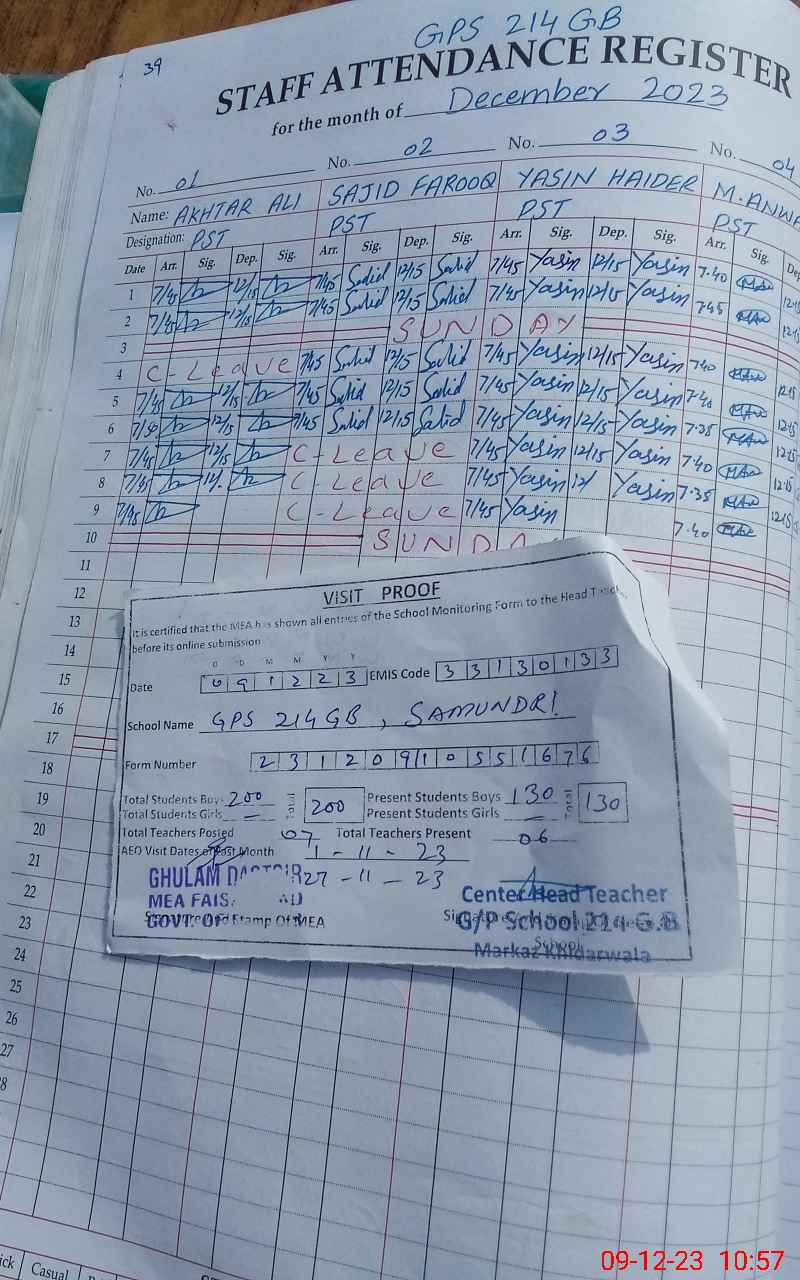 GPS 214 GB
39
STAFF ATTENDANCE REGISTER
for the month of December 2023
No. 01 No. 02 No. 03 No. 04
Name: AKHTAR ALI SAJID FAROOQ YASIN HAIDER M.ANWA
Designation: PST PST PST PST
Date Arr. Sig. Dep. Sig. Arr. Sig. Dep. Sig. Arr. Sig. Dep. Sig. Arr. Sig. Dep
1 7/45 12/15 7/45 Sajid 12/15 Sajid 7/45 Yasin 12/15 Yasin 7.40 12.15
2 7/45 12/15 7/45 Sajid 12/15 Sajid 7/45 Yasin 12/15 Yasin 7.45 12.15
3 SUNDAY
4 C-Leave 7/45 Sajid 12/15 Sajid 7/45 Yasin 12/15 Yasin 7.40 12.15
5 7/45 12/15 7/45 Sajid 12/15 Sajid 7/45 Yasin 12/15 Yasin 7.40 12.15
6 7/50 12/15 7/45 Sajid 12/15 Sajid 7/45 Yasin 12/15 Yasin 7.35 12.15
7 7/45 12/15 C-Leave 7/45 Yasin 12/15 Yasin 7.40 12.15
8 7/45 12/ C Leave 7/45 Yasin 12/ Yasin 7.35 12.15
9 7/45 C-Leave 7/45 Yasin 7.40
10 SUNDA
11
12
13
14
15
16
17
18
19
20
21
22
23
24
25
26
27
8
VISIT PROOF
It is certified that the MEA has shown all entries of the School Monitoring Form to the Head Teach
before its online submission
D D M M Y Y
Date 0 9 1 2 2 3 EMIS Code 3 3 1 3 0 1 3 3
School Name GPS 214 GB, SAMUNDRI
Form Number 2 3 1 2 0 9 1 0 5 5 1 6 7 6
Total Students Boys 200 Total 200 Present Students Boys 130 Total 130
Total Students Girls — Present Students Girls —
Total Teachers Posted 07 Total Teachers Present 06
AEO Visit Dates of Past Month 1-11-23
27-11-23
GHULAM DASTGIR
MEA FAIS. AD
GOVT. OF
Stamp Of MEA
Center Head Teacher
G/P School 214 G.B
Markaz Khidarwala
School
ick Casual
09-12-23 10:57